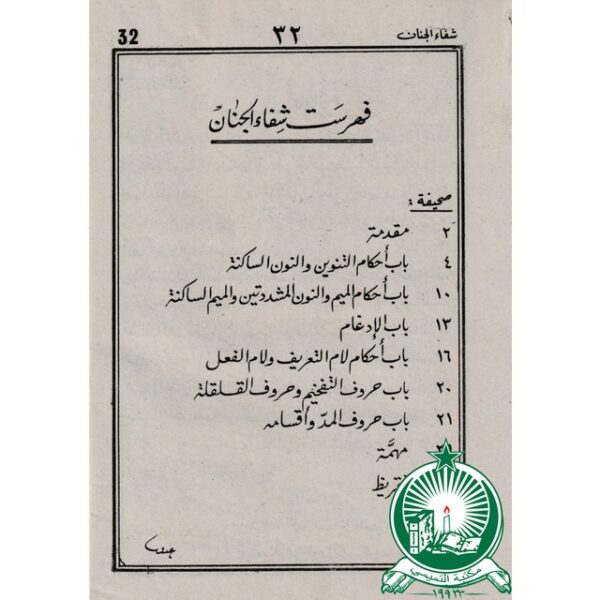 شفاء الجنان ٣٢ 32
فهرست شفاء الجنان
صحيفة :
٢ مقدمة
٤ باب أحكام التنوين والنون الساكنة
١٠ باب أحكام الميم والنون المشددتين والميم الساكنة
١٣ باب الإدغام
١٦ باب أحكام لام التعريف ولام الفعل
٢٠ باب حروف التفخيم وحروف القلقلة
٢١ باب حروف المدّ وأقسامه
مهمَّة
تقريظ
مكتبة التميمي